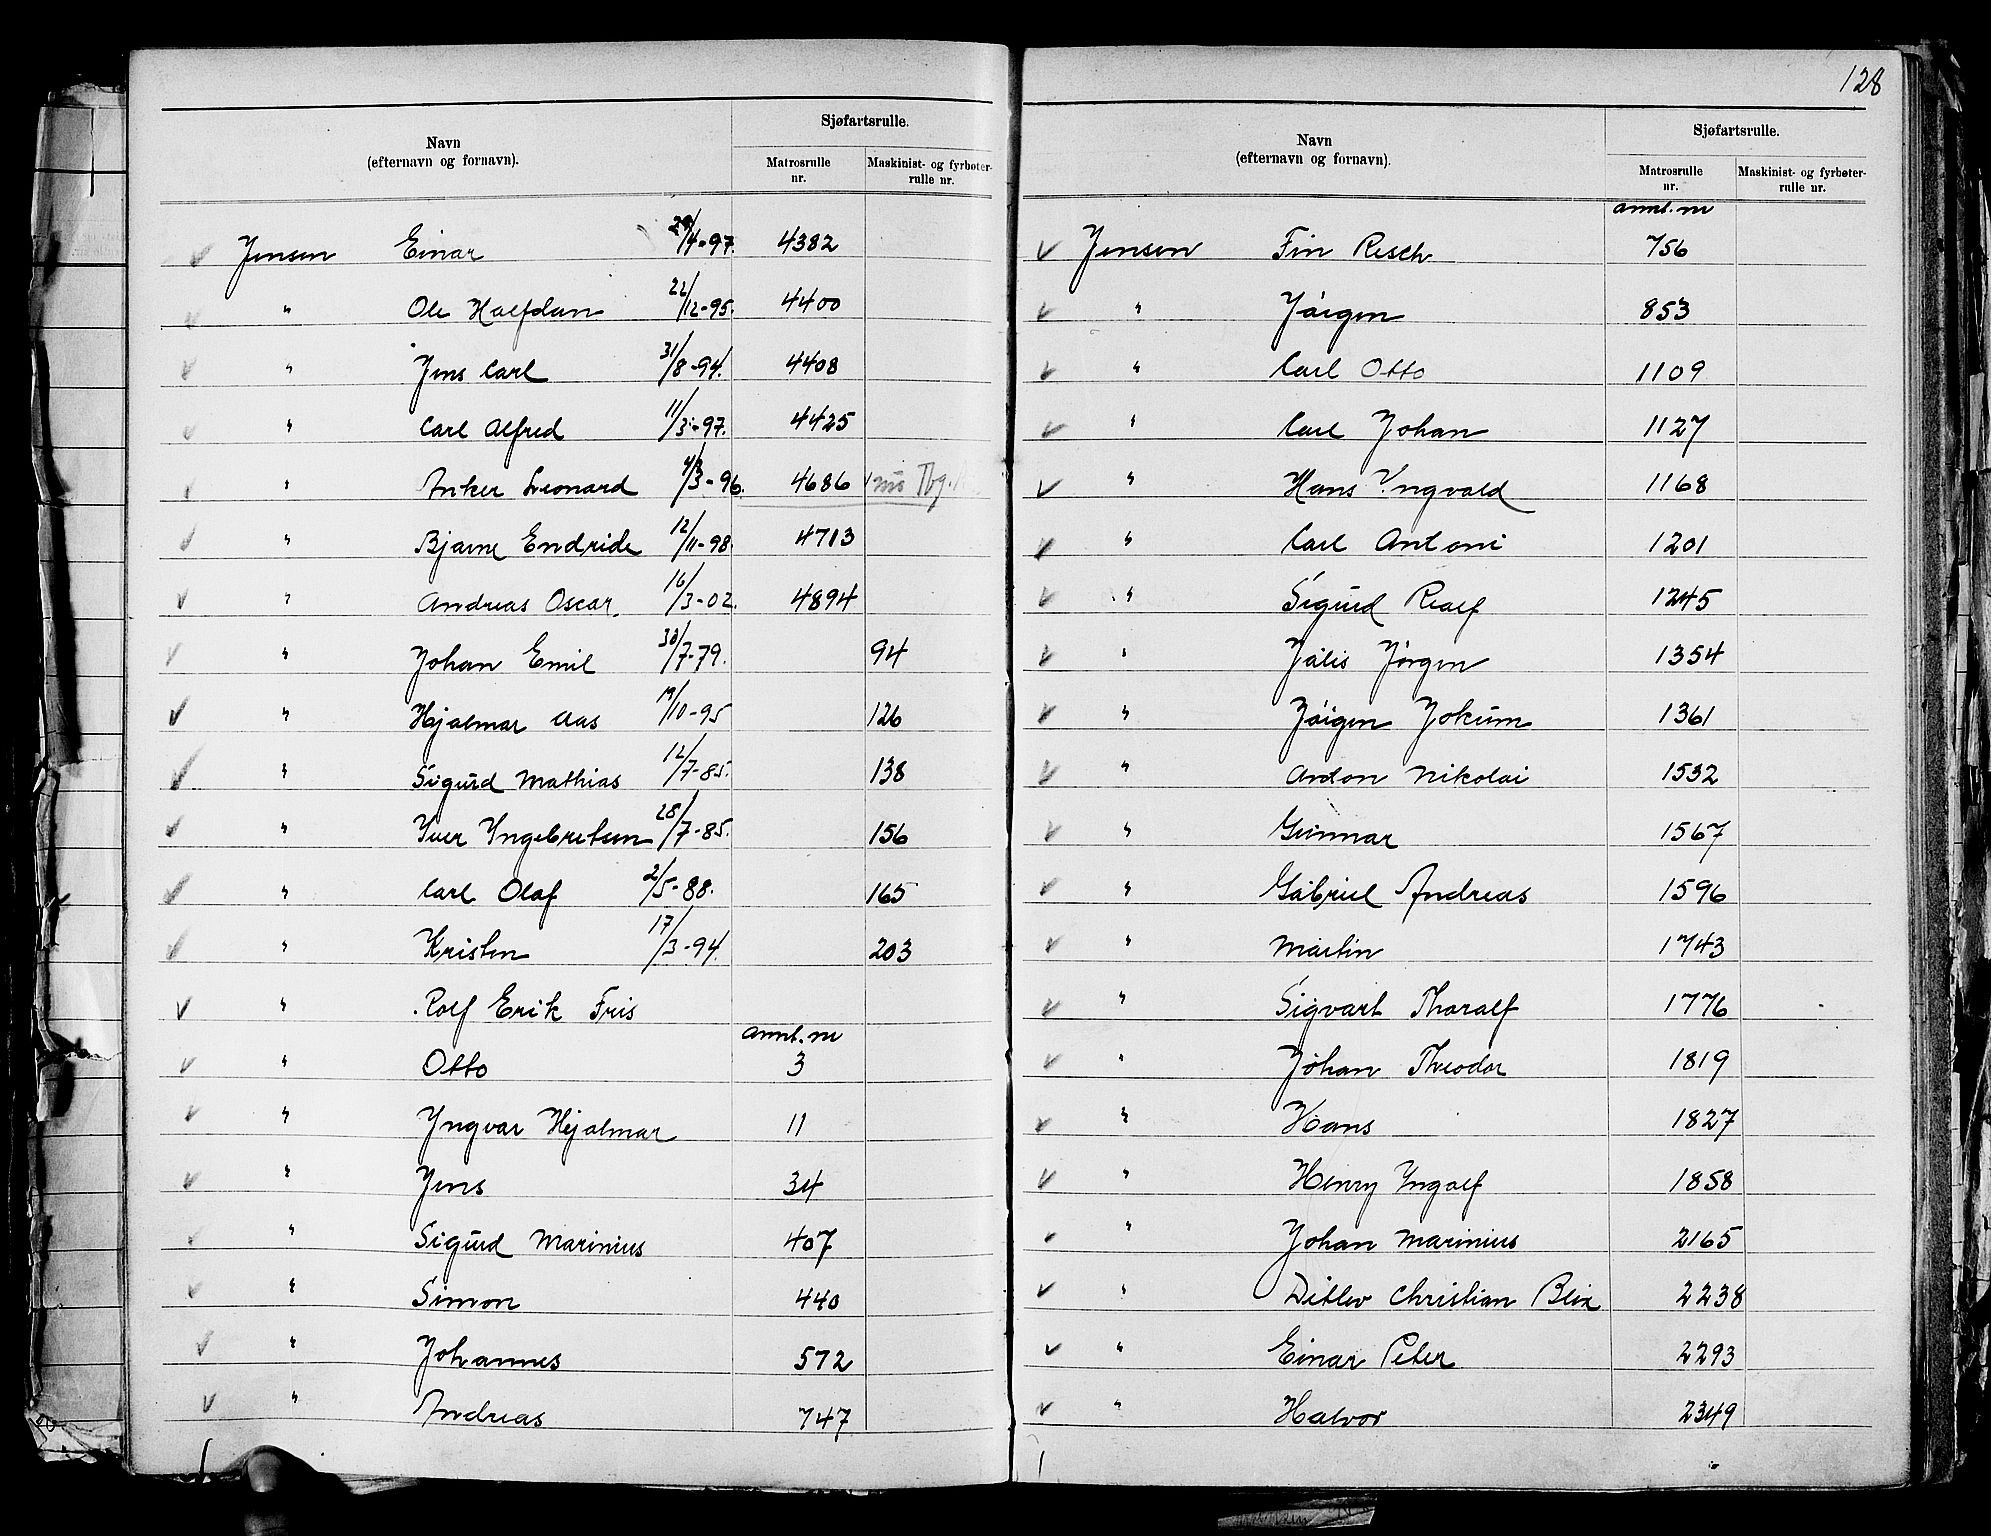 128
Navn
(efternavn og fornavn).
Sjøfartsrulle.
Matrosrulle
nr.
Maskinist- og fyrbøter-
rulle nr.
Jensen Einar 29/4-97. 4382
" Ole Halfdan 22/12-95. 4400
" Jens Carl 31/8-94. 4408
" Carl Alfred 11/3-97. 4425
" Anker Leonard /3-96. 4686 Tbg.
" Bjarne Endride 12/11-98. 4713
" Andreas Oscar. 16/3-02. 4894
" Johan Emil 30/7-79. 94
" Hjalmar Aas 19/10-95 126
" Sigurd Mathias 12/7-85. 138
" Iver Ingebretsen 28/7-85. 156
" Carl Olaf 2/5-88. 165
" Kristen 17/3-94. 203
" Rolf Erik Fris
annt. nr
" Otto 3
" Yngvar Hjalmar 11
" Jens 34
" Sigurd Marinius 407
" Simon 440
" Johannes 572
" Andreas 747
Navn
(efternavn og fornavn).
Sjøfartsrulle.
Matrosrulle
nr.
Maskinist- og fyrbøter-
rulle nr.
annt. nr
Jensen Fin Resch 756
" Jörgen 853
" Carl Otto 1109
" Carl Johan 1127
" Hans Yngvald 1168
" Carl Antoni 1201
" Sigurd Realf 1245
" Jörgen 1354
" Jörgen Jokum 1361
" Anton Nikolai 1532
" Gunnar 1567
" Gabriel Andreas 1596
" Martin 1743
" Sigvart Tharalf 1776
" Johan Theodor 1819
" Hans 1827
" Henry Ingolf 1858
" Johan Marinius 2165
" Ditlev Christian Blix 2238
" Einar Peter 2293
" Halvor 2349